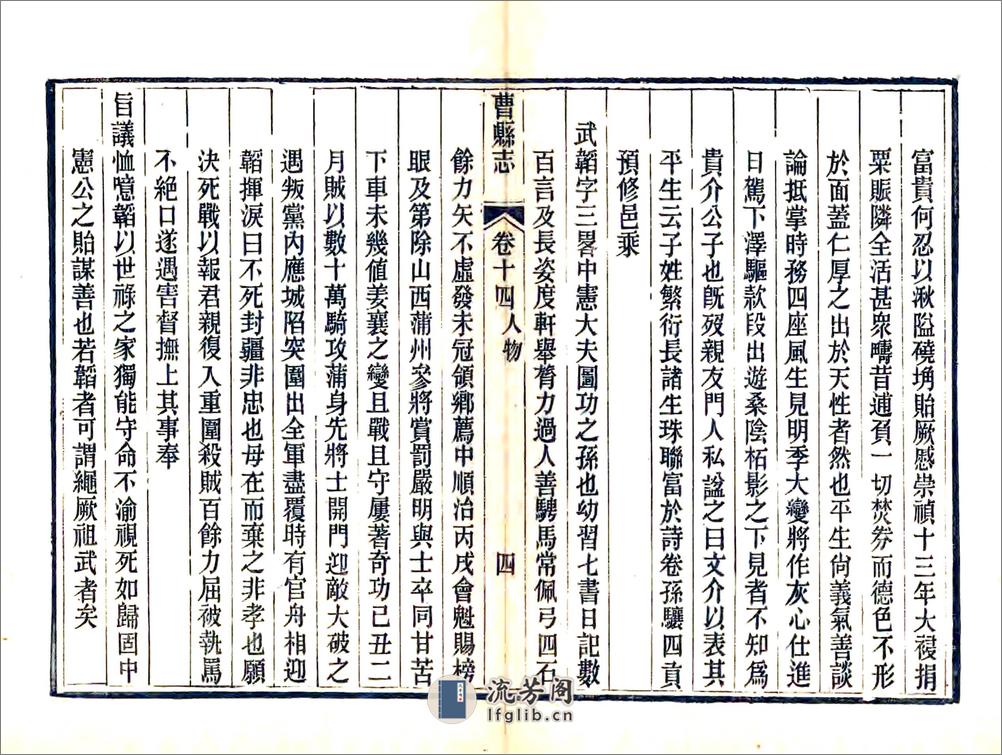 富貴何忍以湫隘磽埆貽厥慼崇禎十三年大祲捐
粟賑隣全活甚衆疇昔逋負一切焚券而德色不形
於面蓋仁厚之出於天性者然也平生尚義氣善談
論抵掌時務四座風生見明季大變將作灰心仕進
日駕下澤驅款段出遊桑陰柘影之下見者不知爲
貴介公子也旣歿親友門人私諡之曰文介以表其
平生云子姓繁衍長諸生珠聯富於詩卷孫驤四貢
預修邑乘
武韜字三畧中憲大夫圖功之孫也幼習七書日記數
百言及長姿度軒舉膂力過人善騁馬常佩弓四石
曹縣志 卷十四 人物 四
餘力矢不虛發未冠領鄉薦中順治丙戌會魁賜榜
眼及第除山西蒲州參將賞罰嚴明與士卒同甘苦
下車未幾值姜襄之變且戰且守屢著奇功己丑二
月賊以數十萬騎攻蒲身先將士開門迎敵大破之
遇叛黨內應城陷突圍出全軍盡覆時有官舟相迎
韜揮淚曰不死封疆非忠也母在而棄之非孝也願
決死戰以報君親復入重圍殺賊百餘力屈被執罵
不絕口遂遇害督撫上其事奉
旨議恤噫韜以世祿之家獨能守命不渝視死如歸固中
憲公之貽謀善也若韜者可謂繩厥祖武者矣
流芳閣
lfglib.cn